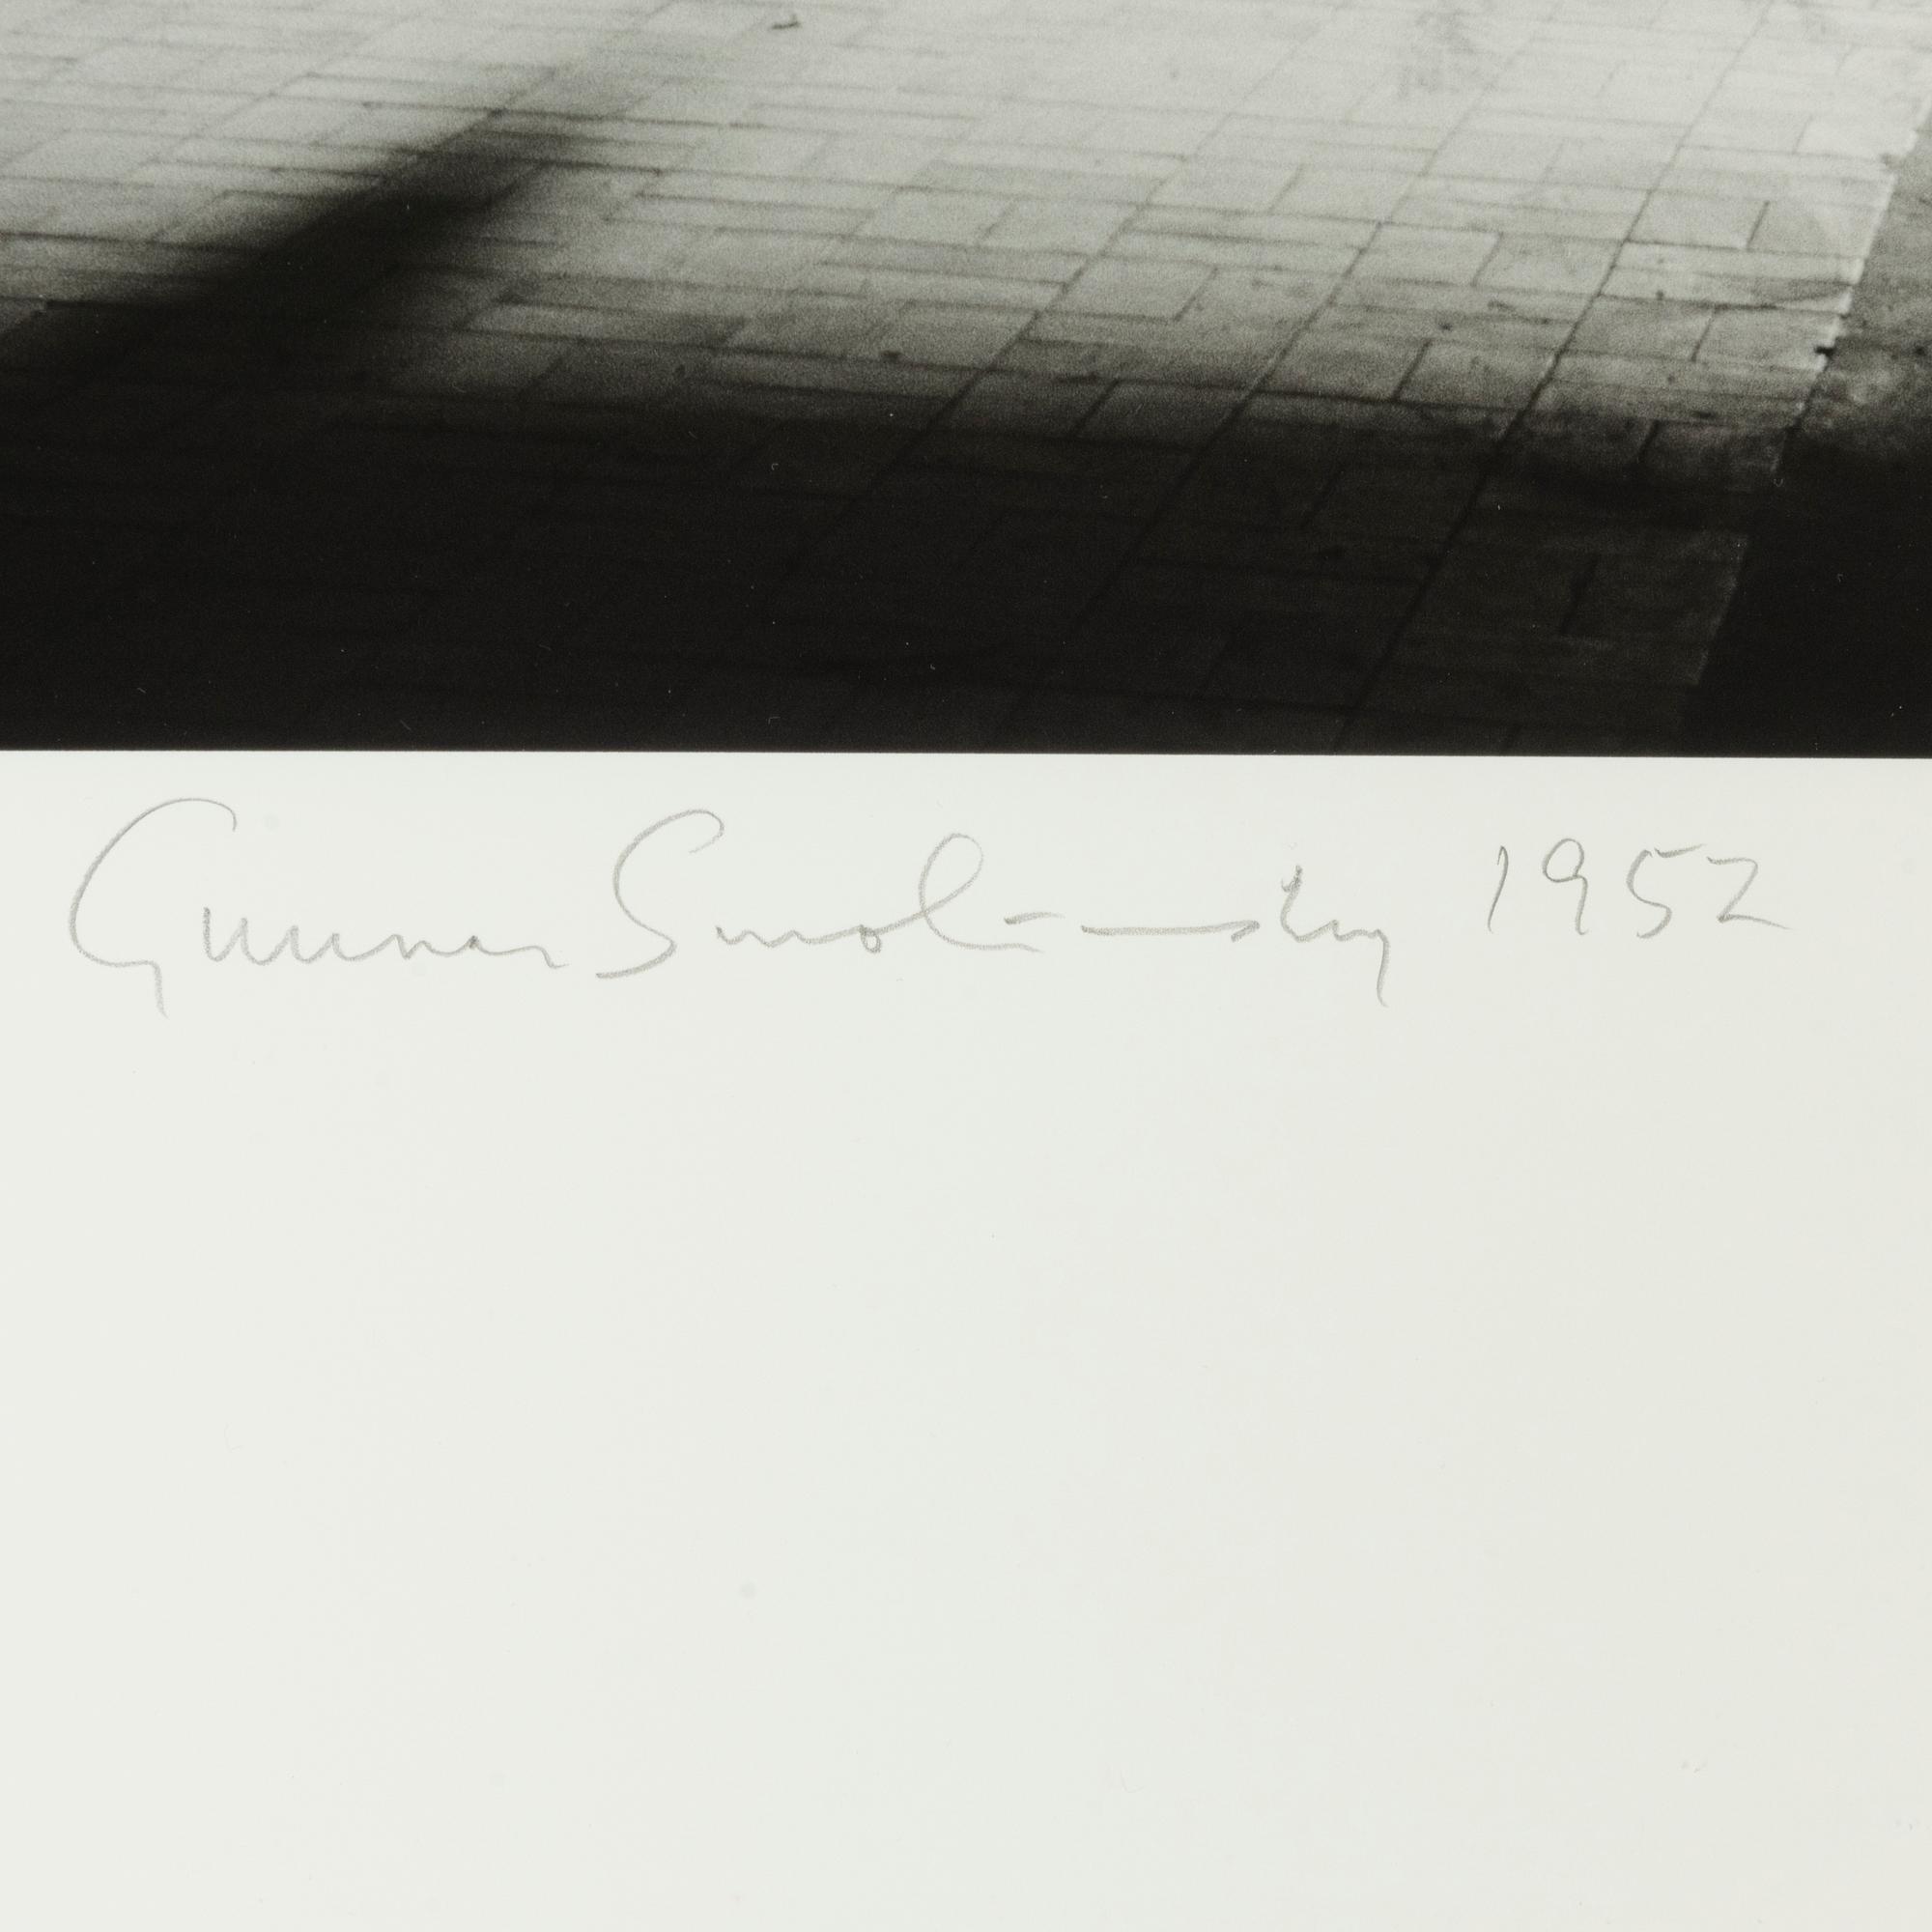 Gunnar Smoliansky 1952